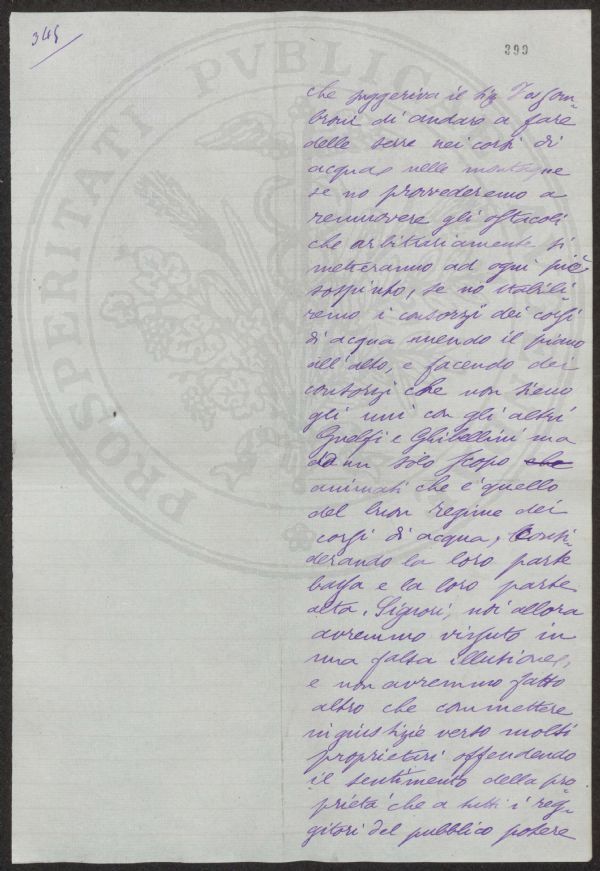 345
399
PROSPERITATI PUBLICAE
che suggeriva il Sig
broni di andare a fare
delle serre nei corsi di
acqua, nelle montagne
se no provvederemo a
remuovere gli ostacoli
che arbitrariamente si
metteranno ad ogni piè
sospinto, se no stabili-
remo i consorzi dei corsi
di acqua unendo il piano
all'alto, e facendo dei
consorzi che non sieno
gli uni con gli altri
Guelfi e Ghibellini ma
da un solo scopo che
animati che è quello
del buon regime dei
corsi di acqua, consi-
derando la loro parte
bassa e la loro parte
alta. Signori, noi allora
avremmo vissuto in
una falsa illusione,
e non avremmo fatto
altro che commettere
ingiustizie verso molti
proprietari offendendo
il sentimento della pro
prietà che a tutti i reg-
gitori del pubblico potere